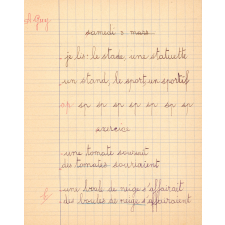 samedi 3 mars
je lis: le stade, une statuette
un stand, le sport, un sportif
sp sp sp sp sp sp sp sp
exercice
une tomate souriait
des tomates souriaient
une boule de neige s'affairait
des boules de neige s'affairaient